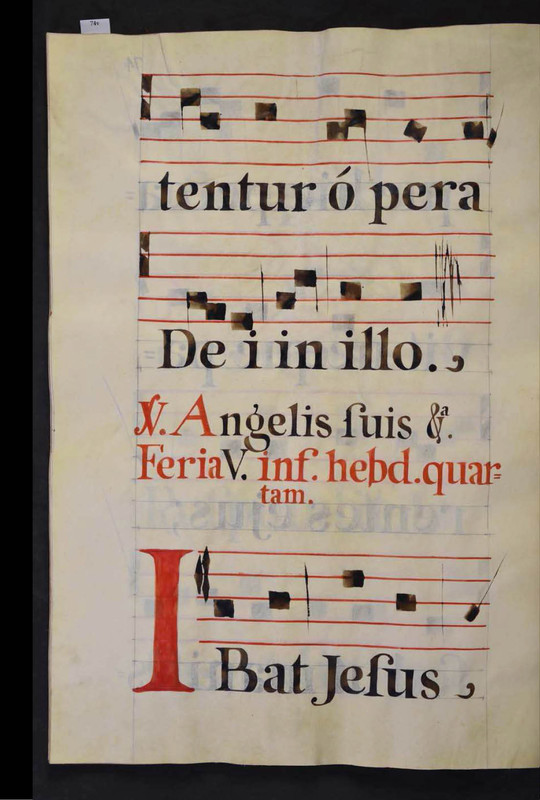 74v
tentur ó pera
De i in illo.
℣. Angelis ſuis &ª.
Feria V. inf. hebd. quar=
tam.
IBat Jeſus